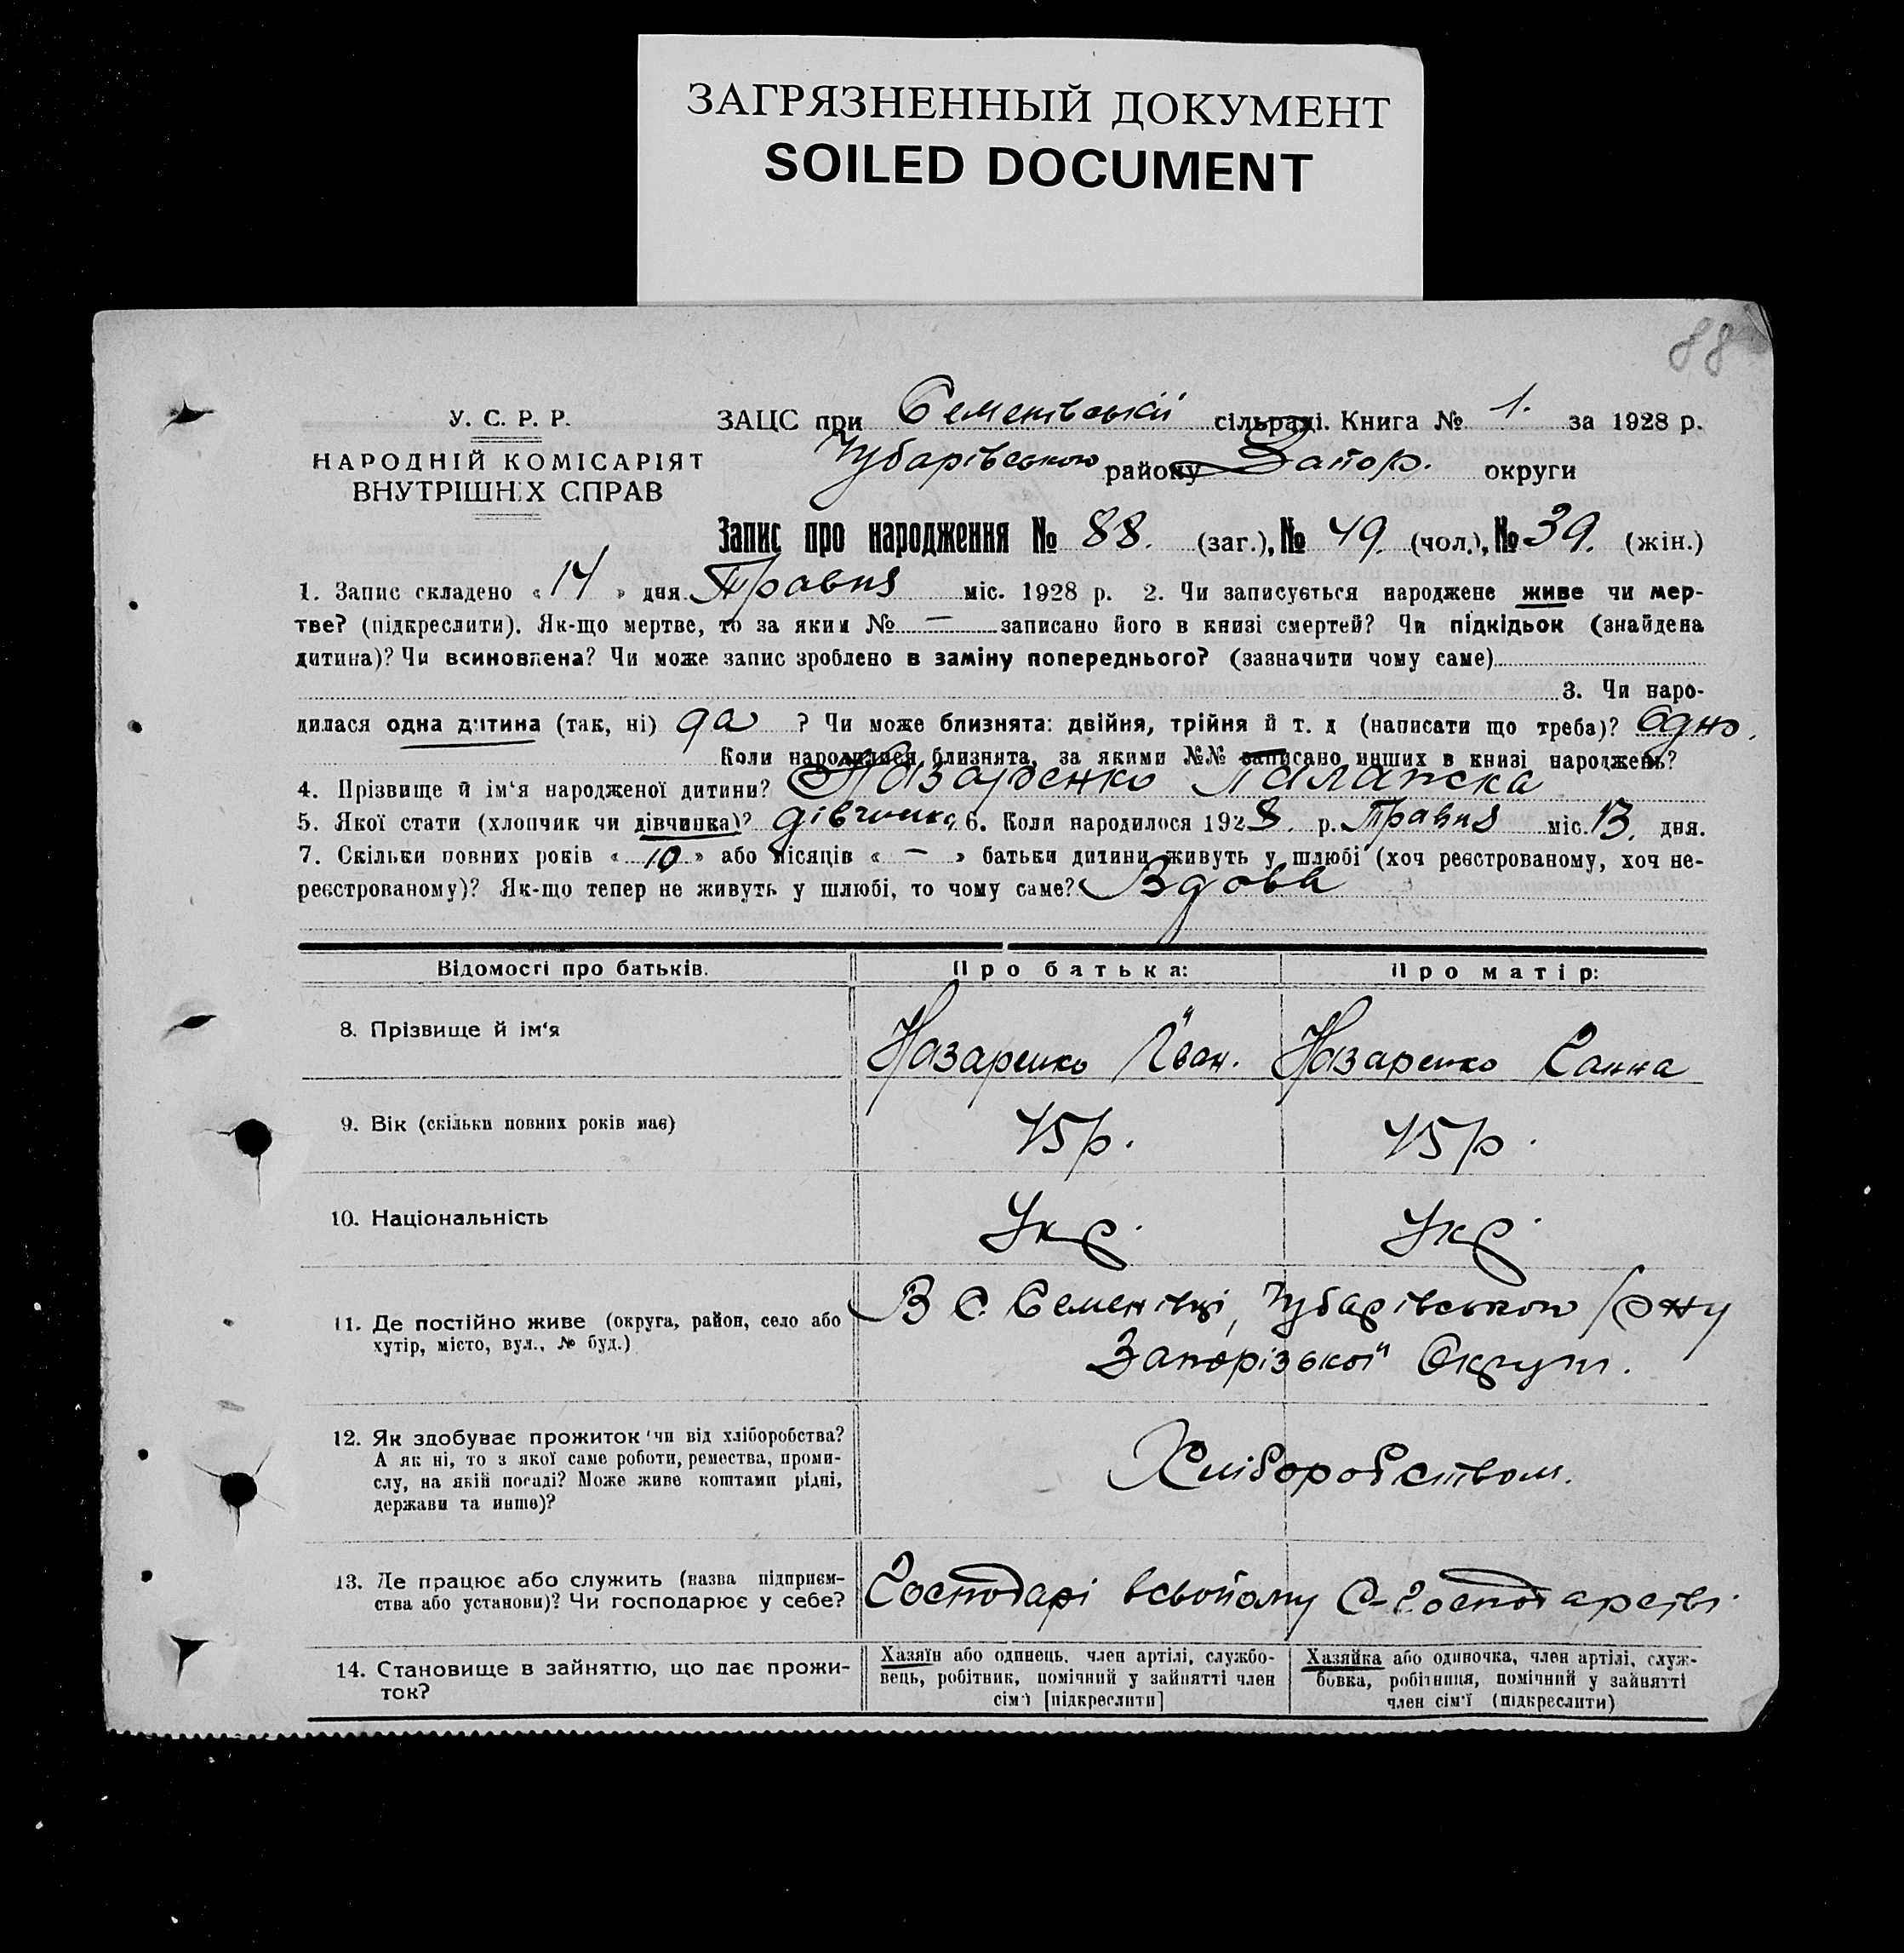 ЗАГРЯЗНЕННЫЙ ДОКУМЕНТ
SOILED DOCUMENT
88
У. С. Р. Р.
НАРОДНІЙ КОМІСАРІЯТ
ВНУТРІШНІХ СПРАВ
ЗАЦС при Семенівській сільраді. Книга № 1. за 1928 р.
Чубарівського району Запор. округи
Запис про народження № 88. (заг.), № 49. (чол.), № 39. (жін.)
1. Запис складено «14» дня Травня міс. 1928 р. 2. Чи записується народжене живе чи мер-
тве? (підкреслити). Як-що мертве, то за яким № — записано його в книзі смертей? Чи підкідьок (знайдена
дитина)? Чи всиновлена? Чи може запис зроблено в заміну попереднього? (зазначити чому саме)
3. Чи наро-
дилася одна дитина (так, ні) да ? Чи може близнята: двійня, трійня й т. д (написати що треба)? Одно.
Коли народилися близнята, за якими №№ записано инших в книзі народжень?
4. Прізвище й ім‘я народженої дитини? Назаренко Палажка
5. Якої стати (хлопчик чи дівчинка)? дівчинка 6. Коли народилося 1928. р. Травня міс. 13. дня.
7. Скільки повних років «10» або місяців « — » батьки дитини живуть у шлюбі (хоч реєстрованому, хоч не-
реєстрованому)? Як-що тепер не живуть у шлюбі, то чому саме? Вдова
Відомості про батьків. Про батька: Про матір:
8. Прізвище й ім‘я Назаренко Іван. Назаренко Ганна
9. Вік (скільки повних років має) 45р. 45р.
10. Національність Укр. Укр.
11. Де постійно живе (округа, район, село або
хутір, місто, вул., № буд.)
В С. Семенівці, Чубарівського р-ну
Запорізької Округи.
12. Як здобуває прожиток чи від хліборобства?
А як ні, то з якої саме роботи, ремества, проми-
слу, на якій посаді? Може живе коштами рідні,
держави та инше)?
Хліборобством.
13. Де працює або служить (назва підприєм-
ства або установи)? Чи господарює у себе?
Господарі всвойому С-Господарстві.
14. Становище в зайняттю, що дає прожи-
ток?
Хазяїн або одинець, член артілі, службо-
вець, робітник, помічний у зайнятті член
сім‘ї [підкреслити]
Хазяйка або одиночка, член артілі, служ-
бовка, робітниця, помічний у зайнятті
член сім‘ї (підкреслити)